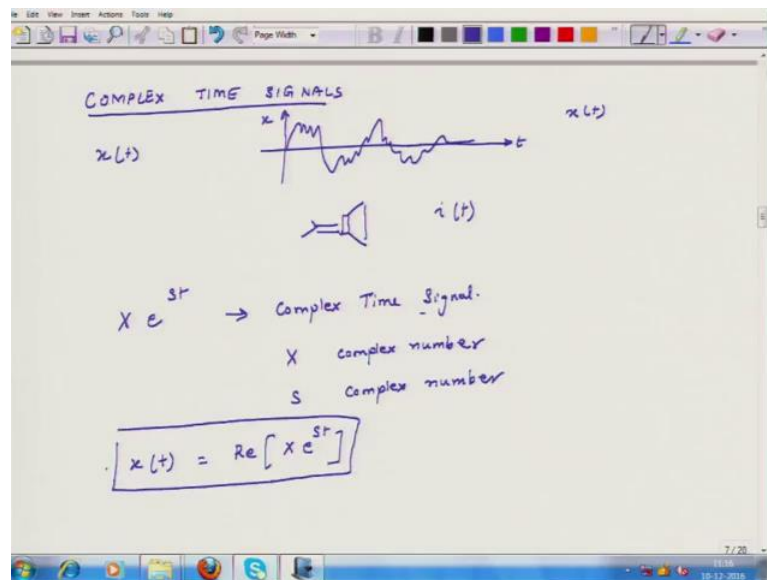 File Edit View Insert Actions Tools Help
Page Width
B I
COMPLEX TIME SIGNALS
x(t)
x
t
x(t)
i(t)
X e^{st} → Complex Time Signal.
X complex number
S complex number
x(t) = Re[X e^{st}]
7/20
11:16
10-12-2016